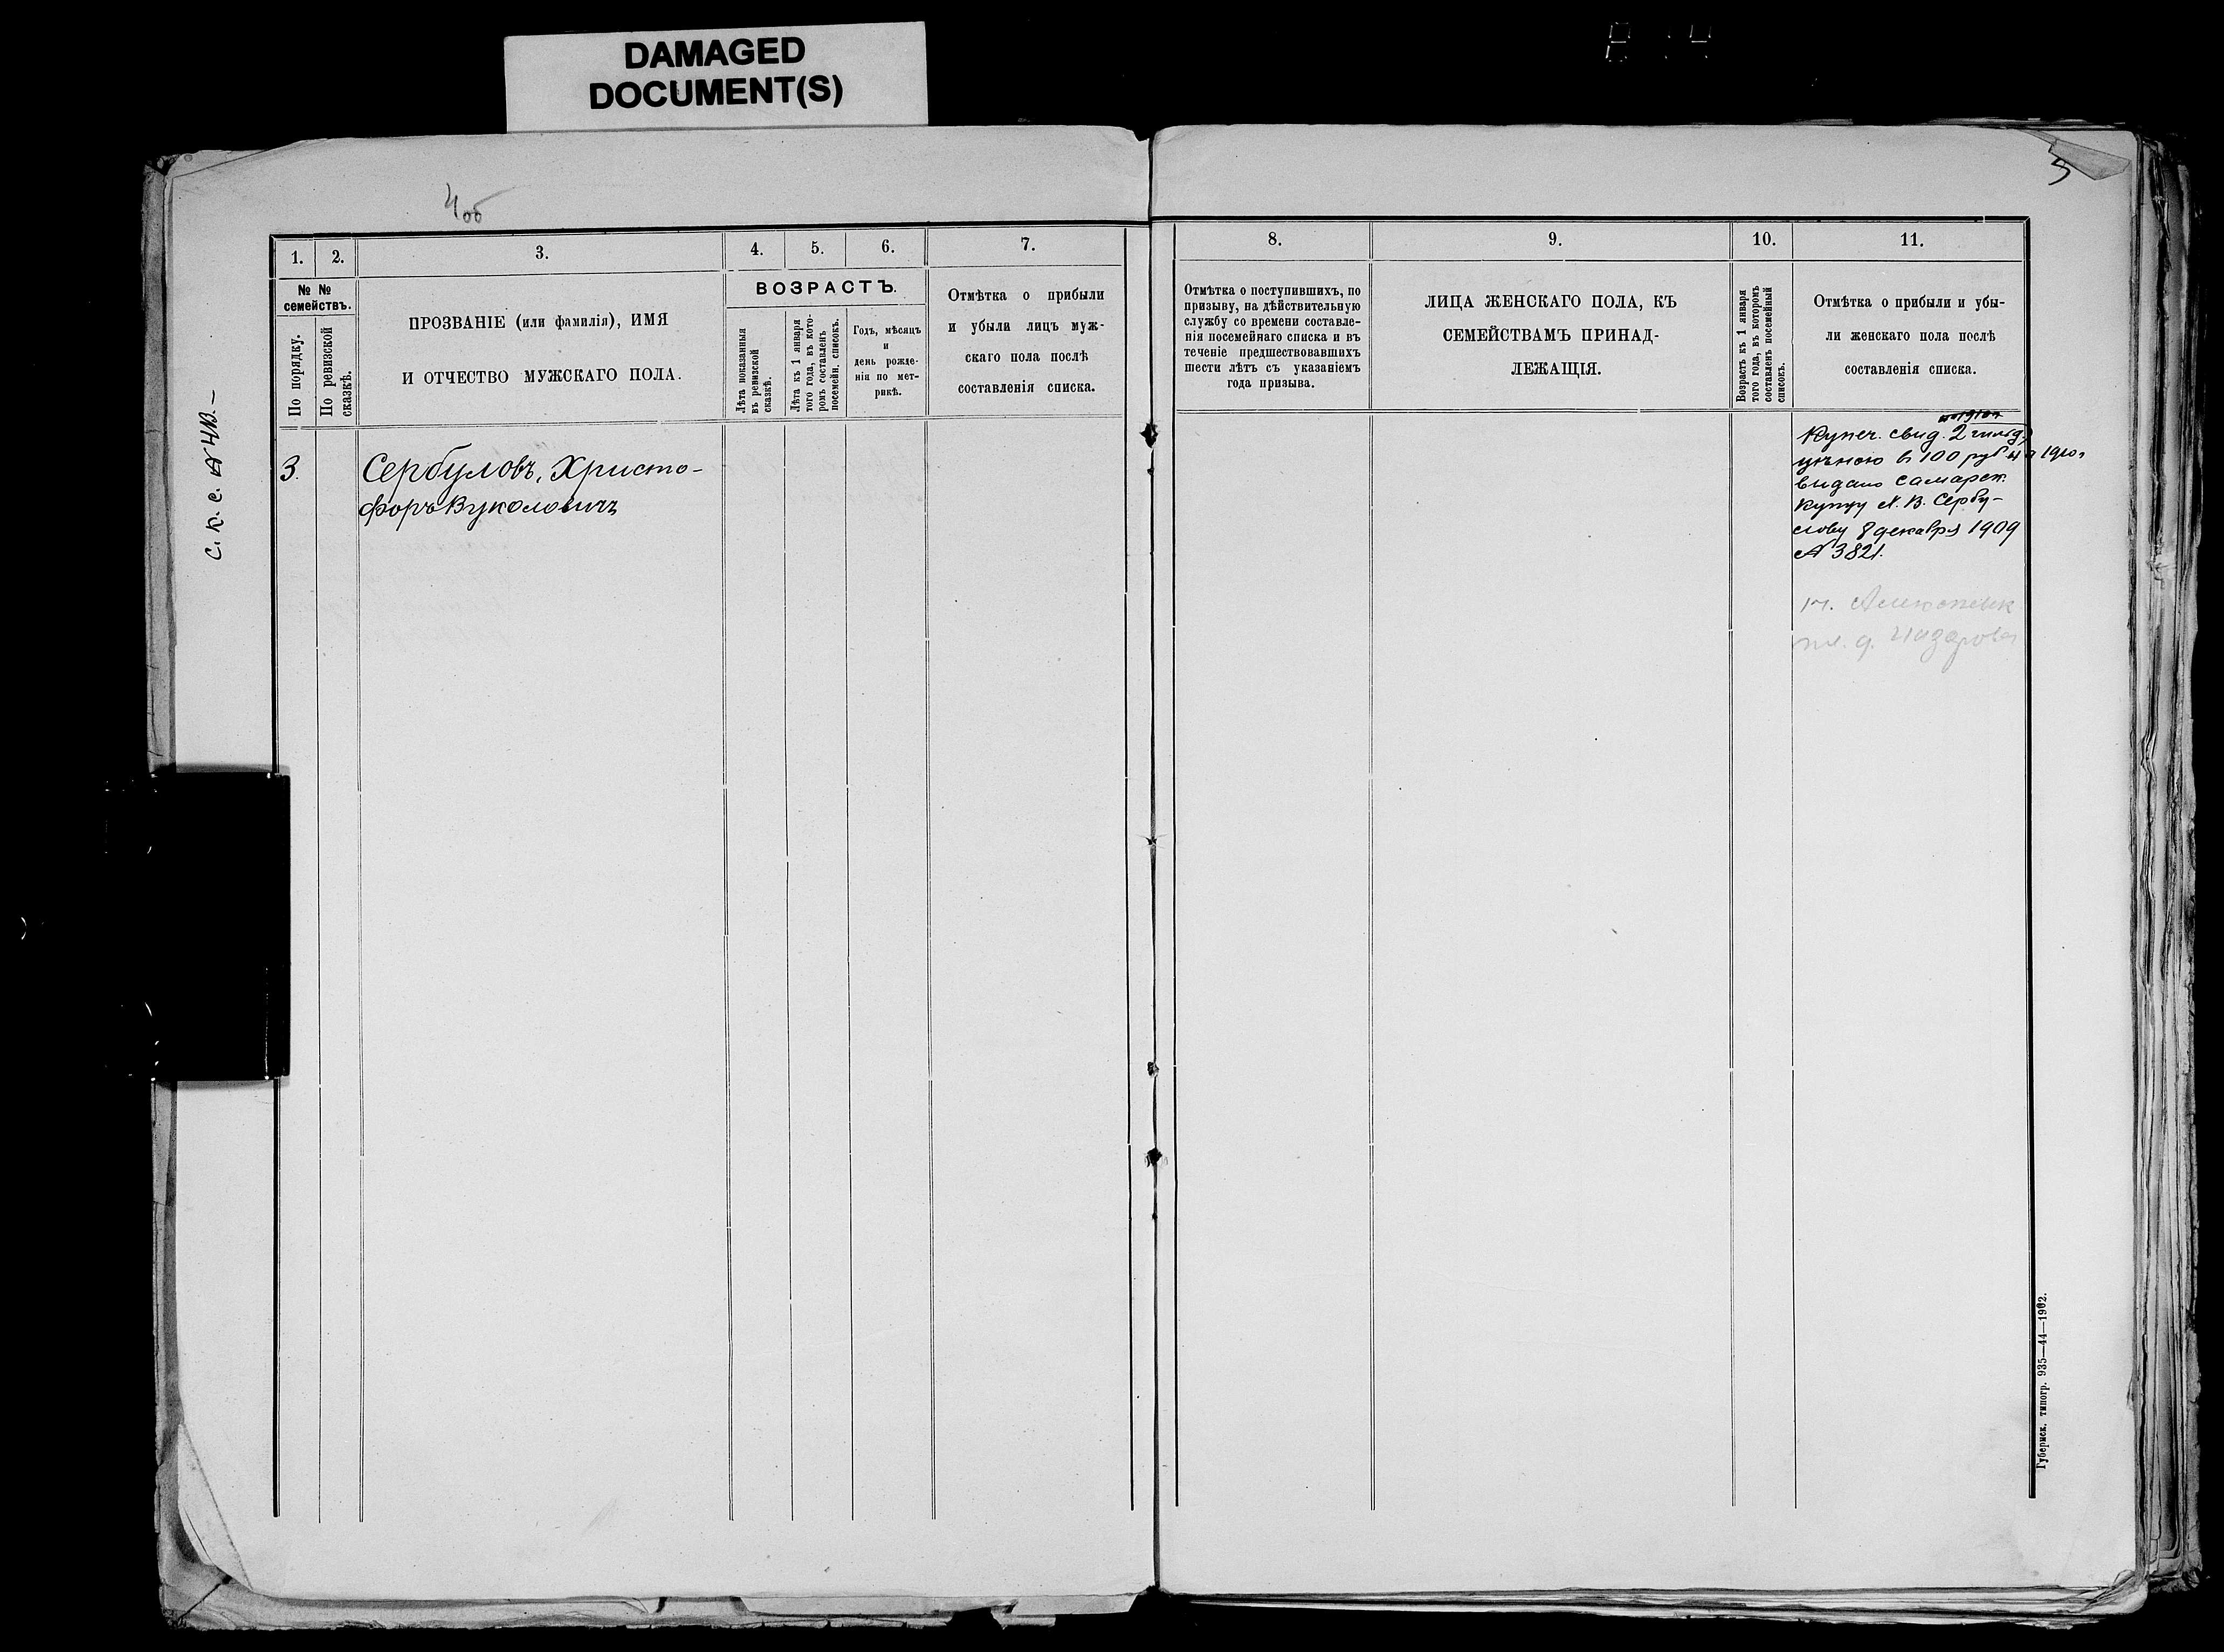 DAMAGED
DOCUMENT(S)
4об
5
С. К. С. № 410.—
1.
2.
3.
4.
5.
6.
7.
№ №
семействъ.
По порядку.
По ревизской
сказкѣ.
ПРОЗВАНІЕ (или фамилія), ИМЯ
И ОТЧЕСТВО МУЖСКАГО ПОЛА.
ВОЗРАСТЪ.
Лѣта показанныя
въ ревизской
сказкѣ.
Лѣта къ 1 января
того года, въ кото-
ромъ составленъ
посемейн. списокъ.
Годъ, мѣсяцъ
и
день рожде-
нія по мет-
рикѣ.
Отмѣтка о прибыли
и убыли лицъ муж-
скаго пола послѣ
составленія списка.
3.
Сербуловъ, Христо-
форъ Вуколовичъ
8.
9.
10.
11.
Отмѣтка о поступившихъ, по
призыву, на дѣйствительную
службу со времени составле-
нія посемейнаго списка и въ
теченіе предшествовавшихъ
шести лѣтъ съ указаніемъ
года призыва.
ЛИЦА ЖЕНСКАГО ПОЛА, КЪ
СЕМЕЙСТВАМЪ ПРИНАД-
ЛЕЖАЩІЯ.
Возрастъ къ 1 января
того года, въ которомъ
составленъ посемейный
списокъ.
Отмѣтка о прибыли и убы-
ли женскаго пола послѣ
составленія списка.
Купеч. свид. 2 гильд.
цѣною в 100 руб на 1910 г
выдано Самарск.
купцу Х. В. Сербу-
лову 8 декабря 1909
№ 3821.
д. Назарова
Губернск. типогр. 935—44—1902.